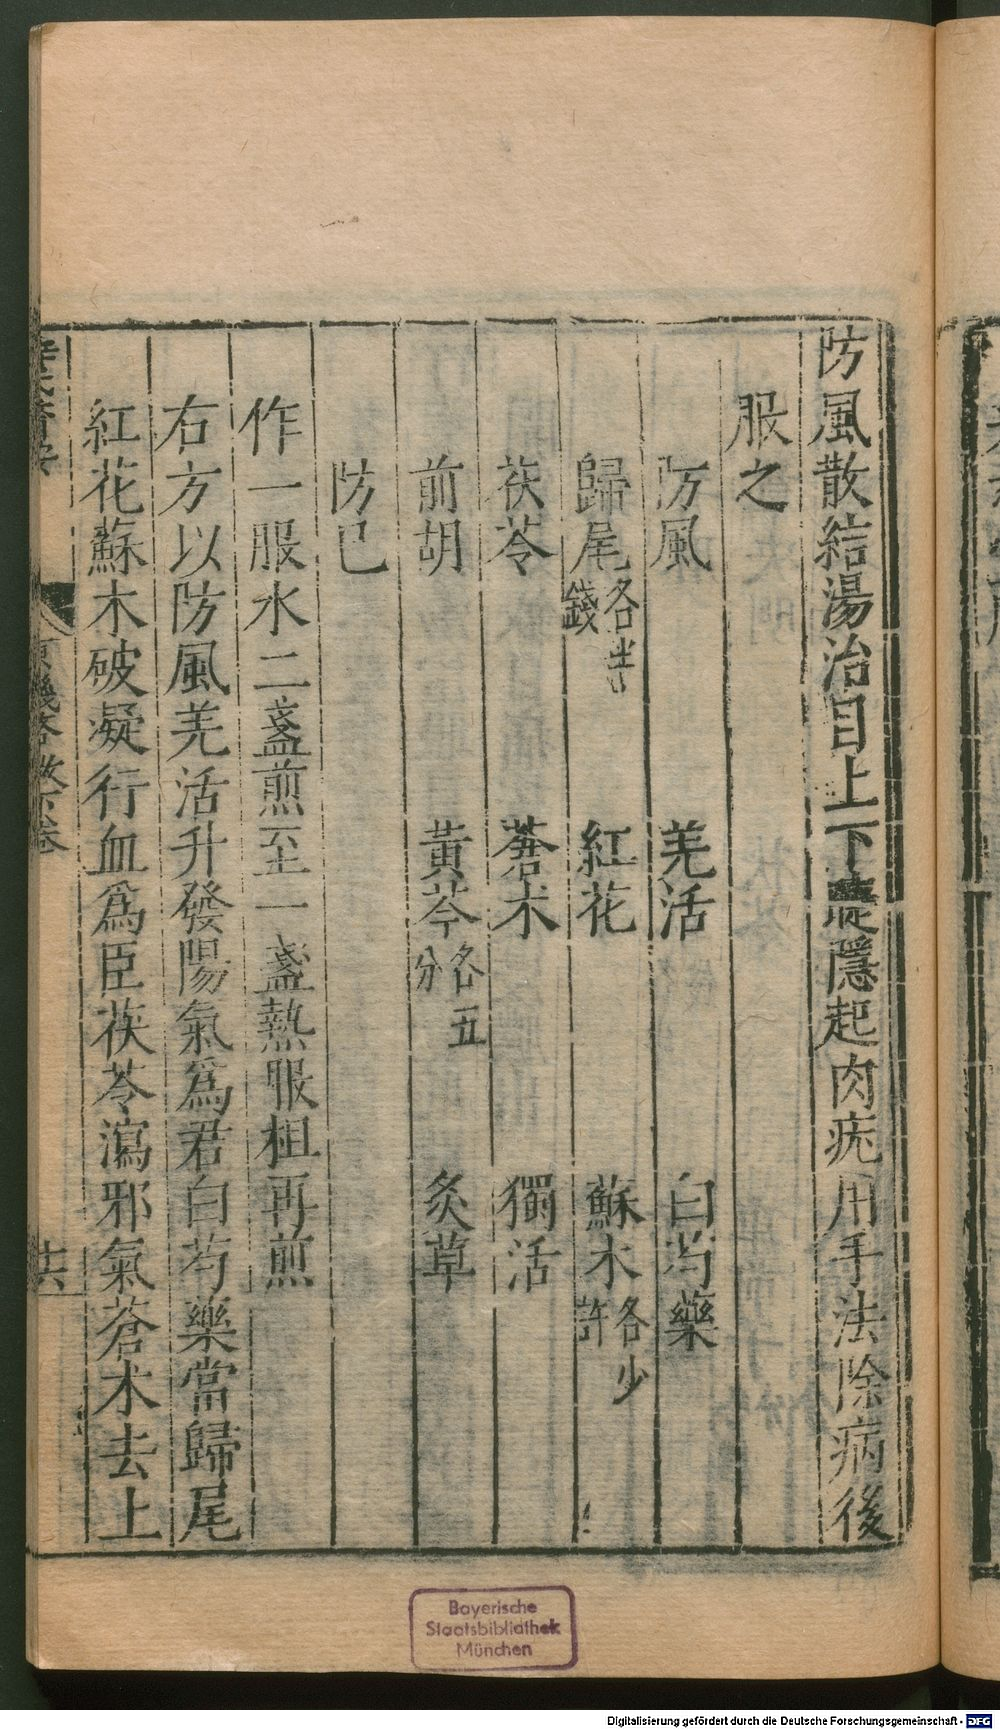 防風散結湯治目上下睫隱起肉疣用手法除病後
服之
防風　羌活　白芍藥
歸尾各半錢　紅花　蘇木各少許
茯苓　蒼朮　獨活
前胡　黃芩各五分　炙草
防已
作一服水二盞煎至一盞熱服柤再煎
右方以防風羌活升發陽氣爲君白芍藥當歸尾
紅花蘇木破凝行血爲臣茯苓瀉邪氣蒼朮去上
原機啓微下卷
十六
Bayerische
Staatsbibliothek
München
Digitalisierung gefördert durch die Deutsche Forschungsgemeinschaft - DFG